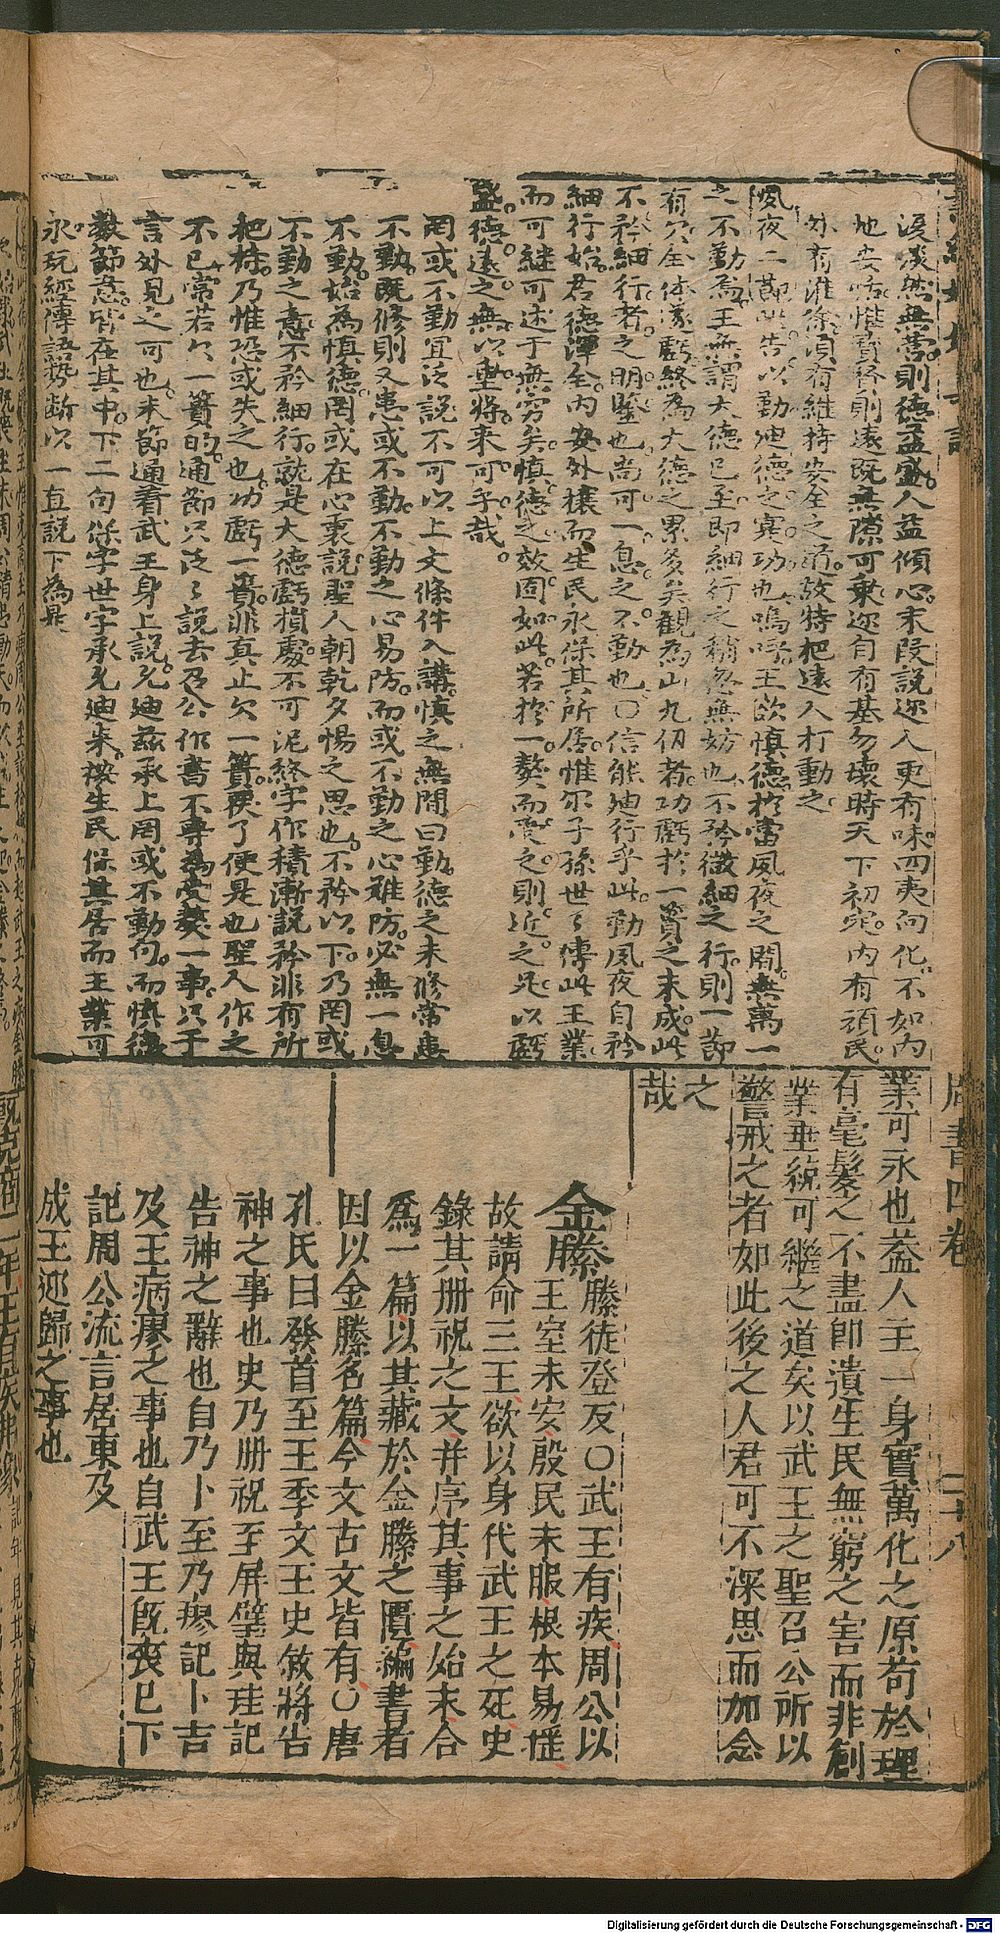 淡然無營則德益盛人益傾心末段說迩人更有味四夷向化不如內
地安。惟寶賢則遠既無隙可乗迩自有基勿壞時天下初定內有頑民
外有淮徐須有維持安全之道故特把遠人打動之
夙夜二節告以勤迪德之實功也嗚呼王欲慎德於當夙夜之間無萬一
之不勤為王無謂大德已至即細行之稍忽無妨也不矜微細之行則一節
有欠全体遂虧終為大德之累多矣觀為山九仞者功虧於一簣之未成此
不矜細行者之明鑒也尚可一息之不勤也○信能廸行乎此勤夙夜自矜
細行始君德渾全內安外攘而生民永保其所居惟尔子孫世々傳此王業
而可継可述于無穷矣慎德之效固如此若於一獒而受之則近之足以虧
盛德遠之無以垂將來可乎哉
罔或不勤宜泛說不可以上文條件入講慎之無間曰勤德之未修常患
不勤既修則又患或不勤不勤之心易防而或不勤之心难防必無一息
不勤始為慎德罔或在心裏說聖人朝乾夕惕之思也不矜以下乃罔或
不勤之意不矜細行就是大德虧損處不可泥終字作積漸說矜非有所
把持乃惟恐或失之也功虧一簣非真止欠一簣便是也聖人作之
不已常若欠一簣的通節只泛々說去召公作書不專為受獒一事只于
言外見之可也末節通看武王身上說允廸兹承上罔或不勤句而慎德
數節意皆在其中下二句保字世字承允迪来按生民保其居而王業可
永玩經傳語勢断以一直說下為是
周書四卷
二十八
業可永也蓋人主一身實萬化之原苟於理
有毫髮之不盡即遺生民無窮之害而非創
業垂統可繼之道矣以武王之聖召公所以
警戒之者如此後之人君可不深思而加念
之
哉
金縢縢徒登反○武王有疾周公以
王室未安殷民未服根本易揺
故請命三王欲以身代武王之死史
錄其冊祝之文并序其事之始末合
爲一篇以其藏於金縢之匱編書者
因以金縢名篇今文古文皆有○唐
孔氏曰發首至王季文王史敘將告
神之事也史乃冊祝至屏璧與珪記
告神之辭也自乃卜至乃瘳記卜吉
及王病瘳之事也自武王旣喪已下
記周公流言居東及
成王迎歸之事也
Digitalisierung gefördert durch die Deutsche Forschungsgemeinschaft - DFG